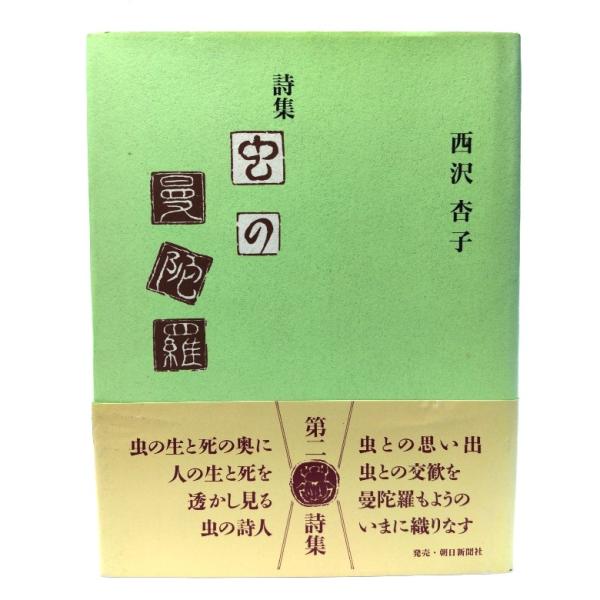 西沢 杏子
詩集
虫の
曼陀羅
虫との思い出
虫との交歓を
曼陀羅もようの
いまに織りなす
発売・朝日新聞社
第二
詩集
虫の生と死の奥に
人の生と死を
透かし見る
虫の詩人